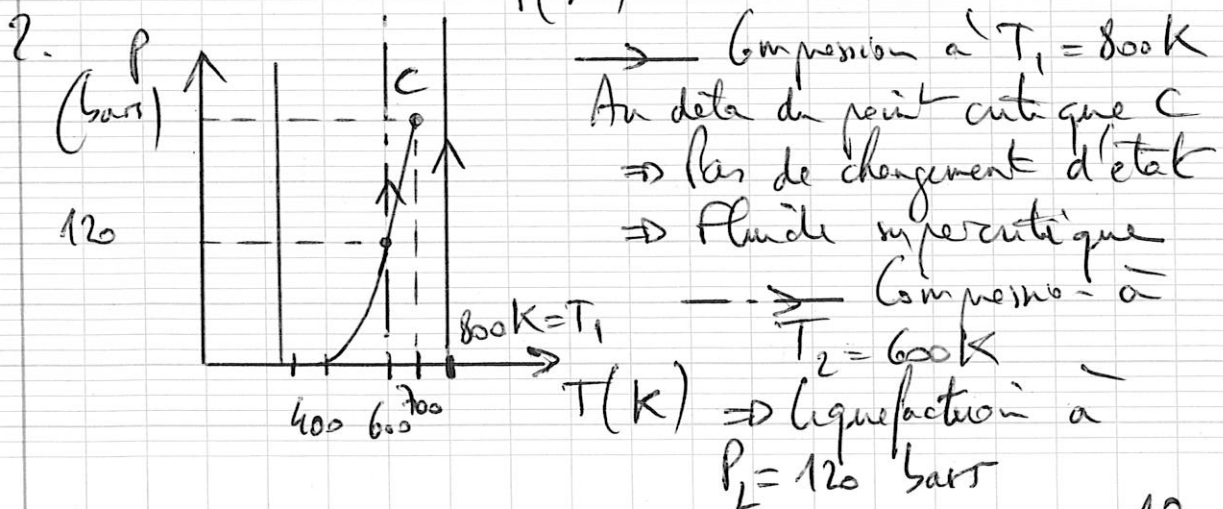 2.
P
(bars)
C
120
800K=T₁
400 600 700
T(K)
Compression à T₁ = 800K
Au delà du point critique C
⇒ Pas de changement d'état
⇒ Fluide supercritique
Compression à
T₂ = 600K
⇒ liquefaction à
P_L = 120 bars